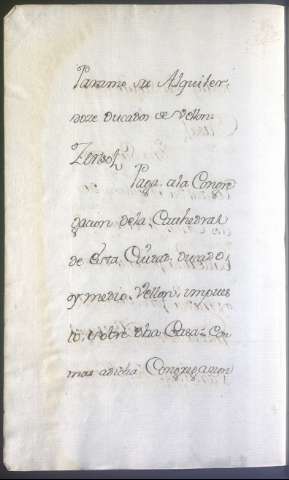 Paxame su Alquiler
doze ducados de Vellon
Paga a la Congre
gacion de la Cathedral
de esta Ciudad, ducado
y medio Vellon, impues
to sobre dha Casa = Con
mas a dicha Congregacion